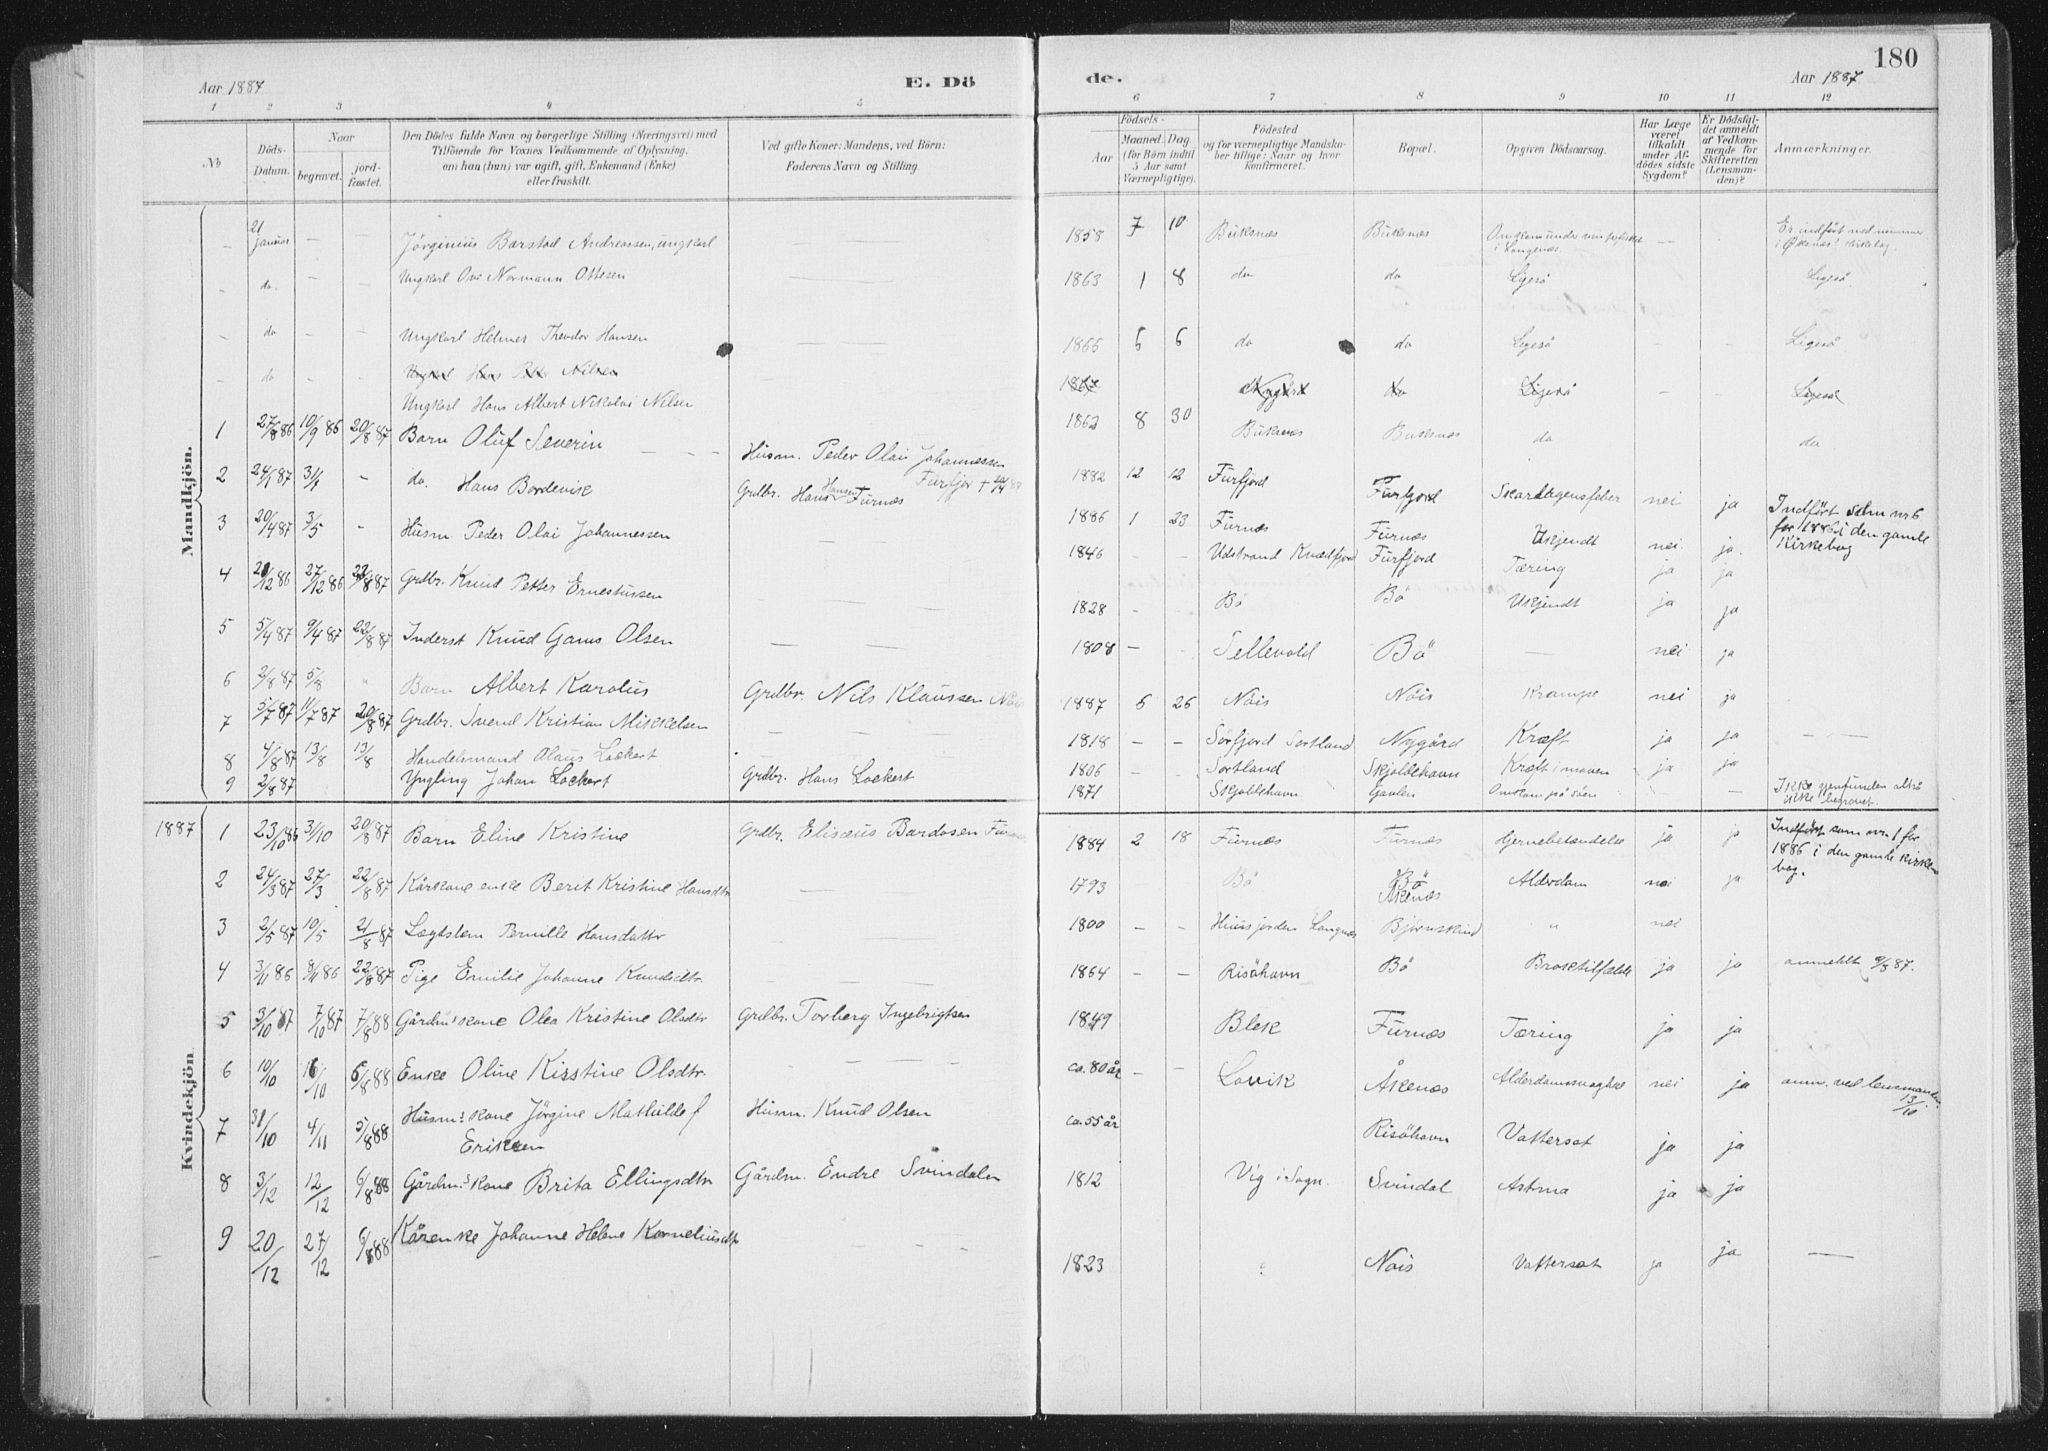 180
Aar 1887 E. Dö de. Aar 1887
1 2 3 4 5 6 7 8 9 10 11 12
No.
Döds-Datum.
Naar
begravet.
jord-fæstet.
Den Dödes fulde Navn og borgerlige Stilling (Næringsvei) med
Tilföiende for Voxnes Vedkommende af Oplysning,
om han (hun) var ugift, gift, Enkemand (Enke)
eller fraskilt.
Ved gifte Koner: Mandens, ved Börn:
Faderens Navn og Stilling.
Födsels-
Aar
Maaned. Dag.
(for Börn indtil
5 Aar samt
Værnepligtige).
Födested
og for værnepligtige Mandska-
ber tillige: Naar og hvor
konfirmeret.
Bopæl.
Opgiven Dödsaarsag.
Har Læge
været
tilkaldt
under Af-
dödes sidste
Sygdom?
Er Dödsfal-
det anmeldt
af Vedkom-
mende for
Skifteretten
(Lensman-
den)?
Anmærkninger.
Mandkjön.
- 21 januar - - Jörginius Barstad Andreassen, ungkarl 1858 7 10 Buksnæs Buksnæs Omkommen under i Langenæs. - Er indfört ved nummer i Öksnes' kirkebog.
- do. - - Ungkarl Ove Normann Ottesen 1863 1 8 do do Ligesö Ligesö.
- do - - Ungkarl Helmer Theodor Hansen 1866 6 6 do do Ligesö - - Ligesö
- do - - Ungkarl Hans Petter Nilsen 1867 Nygård do Ligesö - Ligesö
Ungkarl Hans Albert Nikolai Nilsen 1862 8 30 Buksnæs Buksnæs do do
1 27/8 86 10/9 86 20/8 87 Barn Oluf Severin - - - Husm. Peder Olai Johannessen Furfjor 1882 12 12 Furfjord Furfjord Skarlagensfeber nei ja Indfört som nr 6 for 1886 i den gamle Kirkebog
2 24/1 87 31/1 - do. Hans Bordevik Grdbr. Hans Hansen Furnæs 1886 1 23 Furnæs Furnæs Ukjendt nei. ja.
3 20/4 87 3/5 - Husm Peder Olai Johannessen 1846 - - Udstrand Kvædfjord Furfjord Tæring ja ja
4 21/12 86 27/12 86 22/8 87 Grdbr. Knud Petter Ernestussen 1828 - - Bö Bö Ukjendt ja ja
5 5/4 87 9/4 87 22/8 87 Inderst Knud Gams Olsen 1808 - - Sellevold Bö - nei ja
6 2/8 87 5/8 " Barn Albert Karolus Grdbr Nils Klaussen Nöis 1887 6 26 Nöis Nöis Krampe nei ja
7 5/7 87 11/7 87 20/8 87 Grdbr. Svend Kristian Mikkelsen 1818 - - Sörfjord Sortland Nygård Kræft ja ja
8 4/8 87 13/8 13/8 Handelsmand Olaus Lockert 1806 - - Sortland Skjoldehavn Kræft i maven ja ja
9 2/8 87 Yngling Johan Lockert Grdbr. Hans Lockert 1871 Skjoldehavn Gavlen Omkom på söen - - Ikke gjenfunden altså ikke begravet.
1887
Kvindekjön
1 23/10 86 3/10 20/8 87 Barn Eline Kristine Grdbr. Elisæus Bardosen Furnæs 1884 2 18 Furnæs Furnæs Hjernebetændelse ja ja Indfört som nr. 1 for 1886 i den gamle kirkebog.
2 24/3 87 27/3 22/8 87 Kårkone enke Berit Kristine Hansdtr 1793 Bö Bö Åkenæs Alderdom nei ja
3 2/5 87 10/5 21/8 87 Lægdslem Pernille Hansdattr 1800 - - Huusjorden Langnæs Bjørnskind " nei
4 3/11 86 8/11 86 22/8 87 Pige Emilie Johanne Knudsdtr. 1864 - - Risöhavn Bö Broktilfælde ja ja anmeldt 9/3 87.
5 3/10 87 7/10 87 7/8 88 Gårdm's kone Olea Kristine Olsdtr Grdbr. Torberg Ingebrigtsen 1849 Blek Furnæs Tæring ja ja
6 10/10 16/10 6/8 88 Enke Oline Kirstine Olsdtr. - - - ca. 80 år - - Lovik Åkenæs Alderdomssvaghed nei ja anm. ved lensmanden 13/10
7 31/10 4/11 5/8 88 Husm's kone Jörgine Mathilde f Eriksen Husm. Knud Olsen ca. 55 år Risöhavn Vattersot ja ja
8 3/12 12/12 6/8 88 Gårdm.'s kone Brita Ellingsdtr Gårdm. Endre Svindalen 1812 Vig i Sogn. Svindal Astma ja ja
9 20/12 27/12 6/8 88 Kårenke Johanne Helene Korneliusdtr - - - 1823 Nöis Vattersot ja ja -